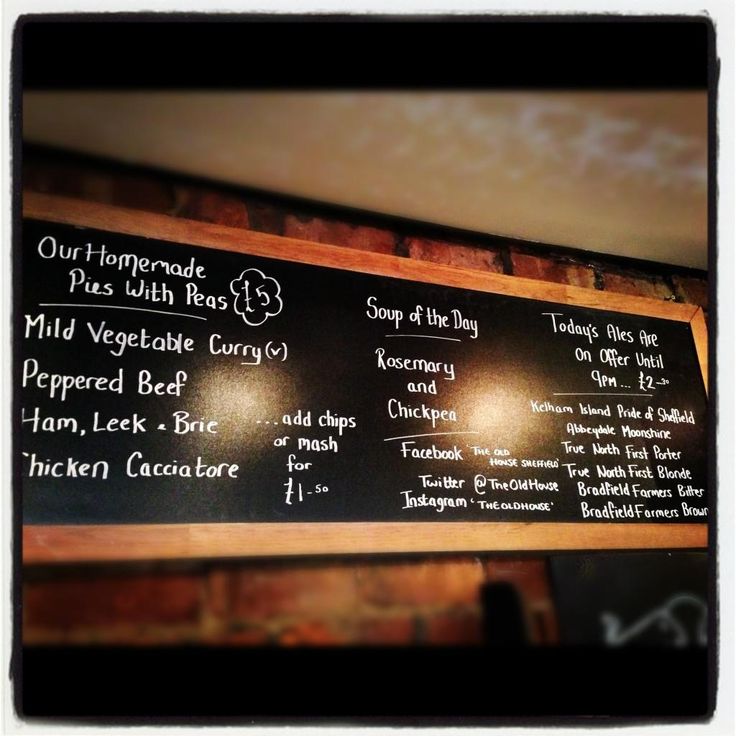 Our Homemade
Pies With Peas £5
Mild Vegetable Curry (v)
Peppered Beef
Ham, Leek & Brie
Chicken Cacciatore
...add chips
or mash
for
£1-50
Soup of the Day
Rosemary
and
Chickpea
Facebook 'THE OLD
HOUSE SHEFFIELD'
Twitter @TheOldHouse
Instagram 'THEOLDHOUSE'
Today's Ales Are
on Offer Until
9pm... £2-30
Kelham Island Pride of Sheffield
Abbeydale Moonshine
True North First Porter
True North First Blonde
Bradfield Farmers Bitter
Bradfield Farmers Brown